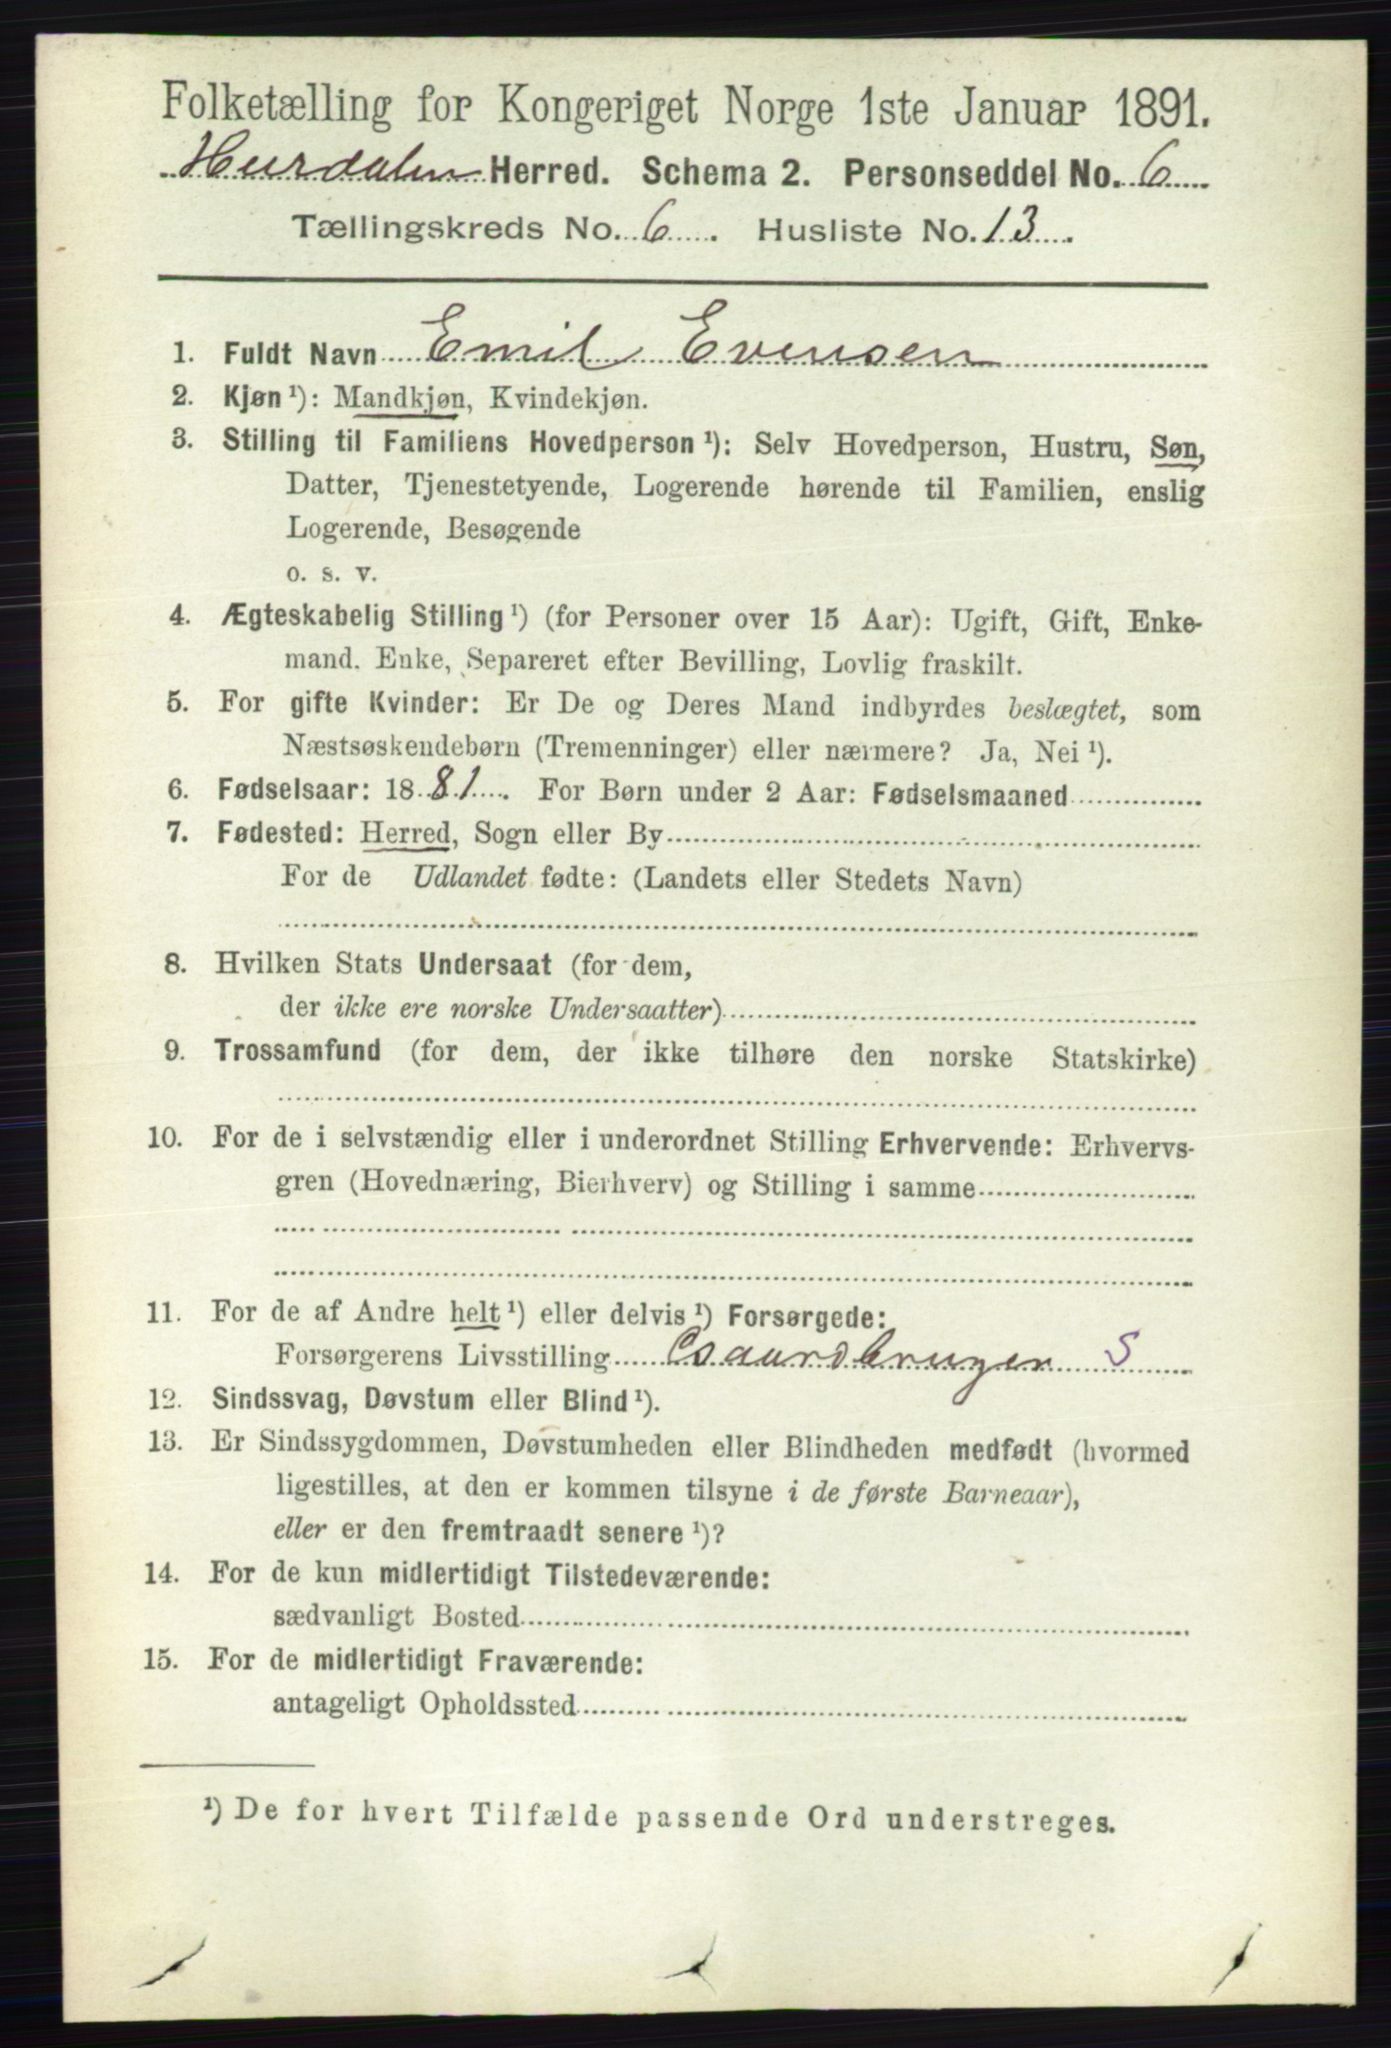 Folketælling for Kongeriget Norge 1ste Januar 1891.
Hurdalen Herred. Schema 2. Personseddel No. 6
Tællingskreds No. 6. Husliste No. 13.
1. Fuldt Navn Emil Evensen
2. Kjøn ¹): Mandkjøn, Kvindekjøn.
3. Stilling til Familiens Hovedperson ¹): Selv Hovedperson, Hustru, Søn,
Datter, Tjenestetyende, Logerende hørende til Familien, enslig
Logerende, Besøgende
o. s. v.
4. Ægteskabelig Stilling ¹) (for Personer over 15 Aar): Ugift, Gift, Enke-
mand, Enke, Separeret efter Bevilling, Lovlig fraskilt.
5. For gifte Kvinder: Er De og Deres Mand indbyrdes beslægtet, som
Næstsøskendebørn (Tremenninger) eller nærmere? Ja, Nei ¹).
6. Fødselsaar: 1881. For Børn under 2 Aar: Fødselsmaaned
7. Fødested: Herred, Sogn eller By
For de Udlandet fødte: (Landets eller Stedets Navn)
8. Hvilken Stats Undersaat (for dem,
der ikke ere norske Undersaatter)
9. Trossamfund (for dem, der ikke tilhøre den norske Statskirke)
10. For de i selvstændig eller i underordnet Stilling Erhvervende: Erhvervs-
gren (Hovednæring, Bierhverv) og Stilling i samme
11. For de af Andre helt ¹) eller delvis ¹) Forsørgede:
Forsørgerens Livsstilling Gaardbruger S
12. Sindssvag, Døvstum eller Blind ¹).
13. Er Sindssygdommen, Døvstumheden eller Blindheden medfødt (hvormed
ligestilles, at den er kommen tilsyne i de første Barneaar),
eller er den fremtraadt senere ¹)?
14. For de kun midlertidigt Tilstedeværende:
sædvanligt Bosted
15. For de midlertidigt Fraværende:
antageligt Opholdssted
¹) De for hvert Tilfælde passende Ord understreges.